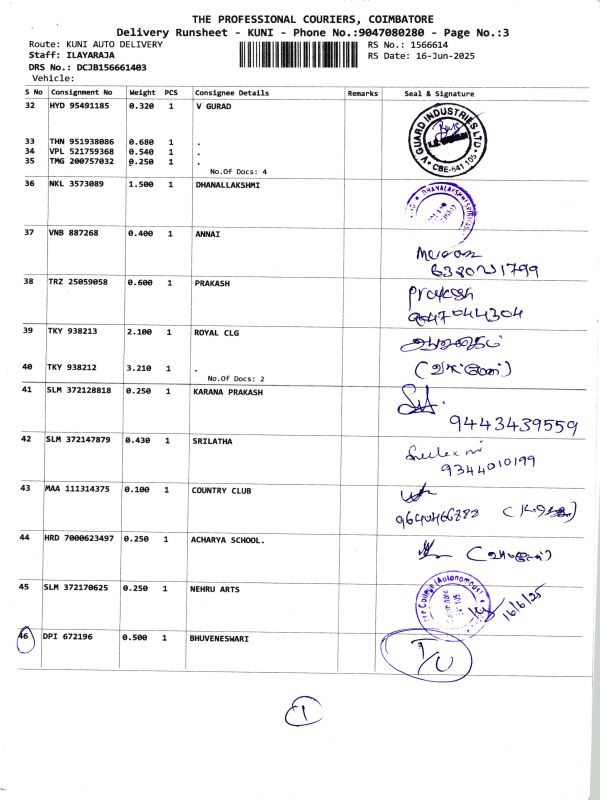 THE PROFESSIONAL COURIERS, COIMBATORE
Delivery Runsheet - KUNI - Phone No.:9047080280 - Page No.:3
Route: KUNI AUTO DELIVERY RS No.: 1566614
Staff: ILAYARAJA RS Date: 16-Jun-2025
DRS No.: DCJB156661403
Vehicle:
S No Consignment No Weight PCS Consignee Details Remarks Seal & Signature
32 HYD 95491185 0.320 1 V GURAD
V GUARD INDUSTRIES LTD. CBE-641 105
33 THN 951938086 0.680 1 .
34 VPL 521759368 0.540 1 .
35 TMG 200757032 0.250 1 .
No.Of Docs: 4
36 NKL 3573089 1.500 1 DHANALLAKSHMI
37 VNB 887268 0.400 1 ANNAI
38 TRZ 25059058 0.600 1 PRAKASH
Prakash
9047044304
39 TKY 938213 2.100 1 ROYAL CLG
40 TKY 938212 3.210 1 .
No.Of Docs: 2
41 SLM 372128818 0.250 1 KARANA PRAKASH
9443439559
42 SLM 372147879 0.430 1 SRILATHA
9344010199
43 MAA 111314375 0.100 1 COUNTRY CLUB
44 HRD 7000623497 0.250 1 ACHARYA SCHOOL.
45 SLM 372170625 0.250 1 NEHRU ARTS
College (Autonomous)
16/6/25
46 DPI 672196 0.500 1 BHUVENESWARI
1